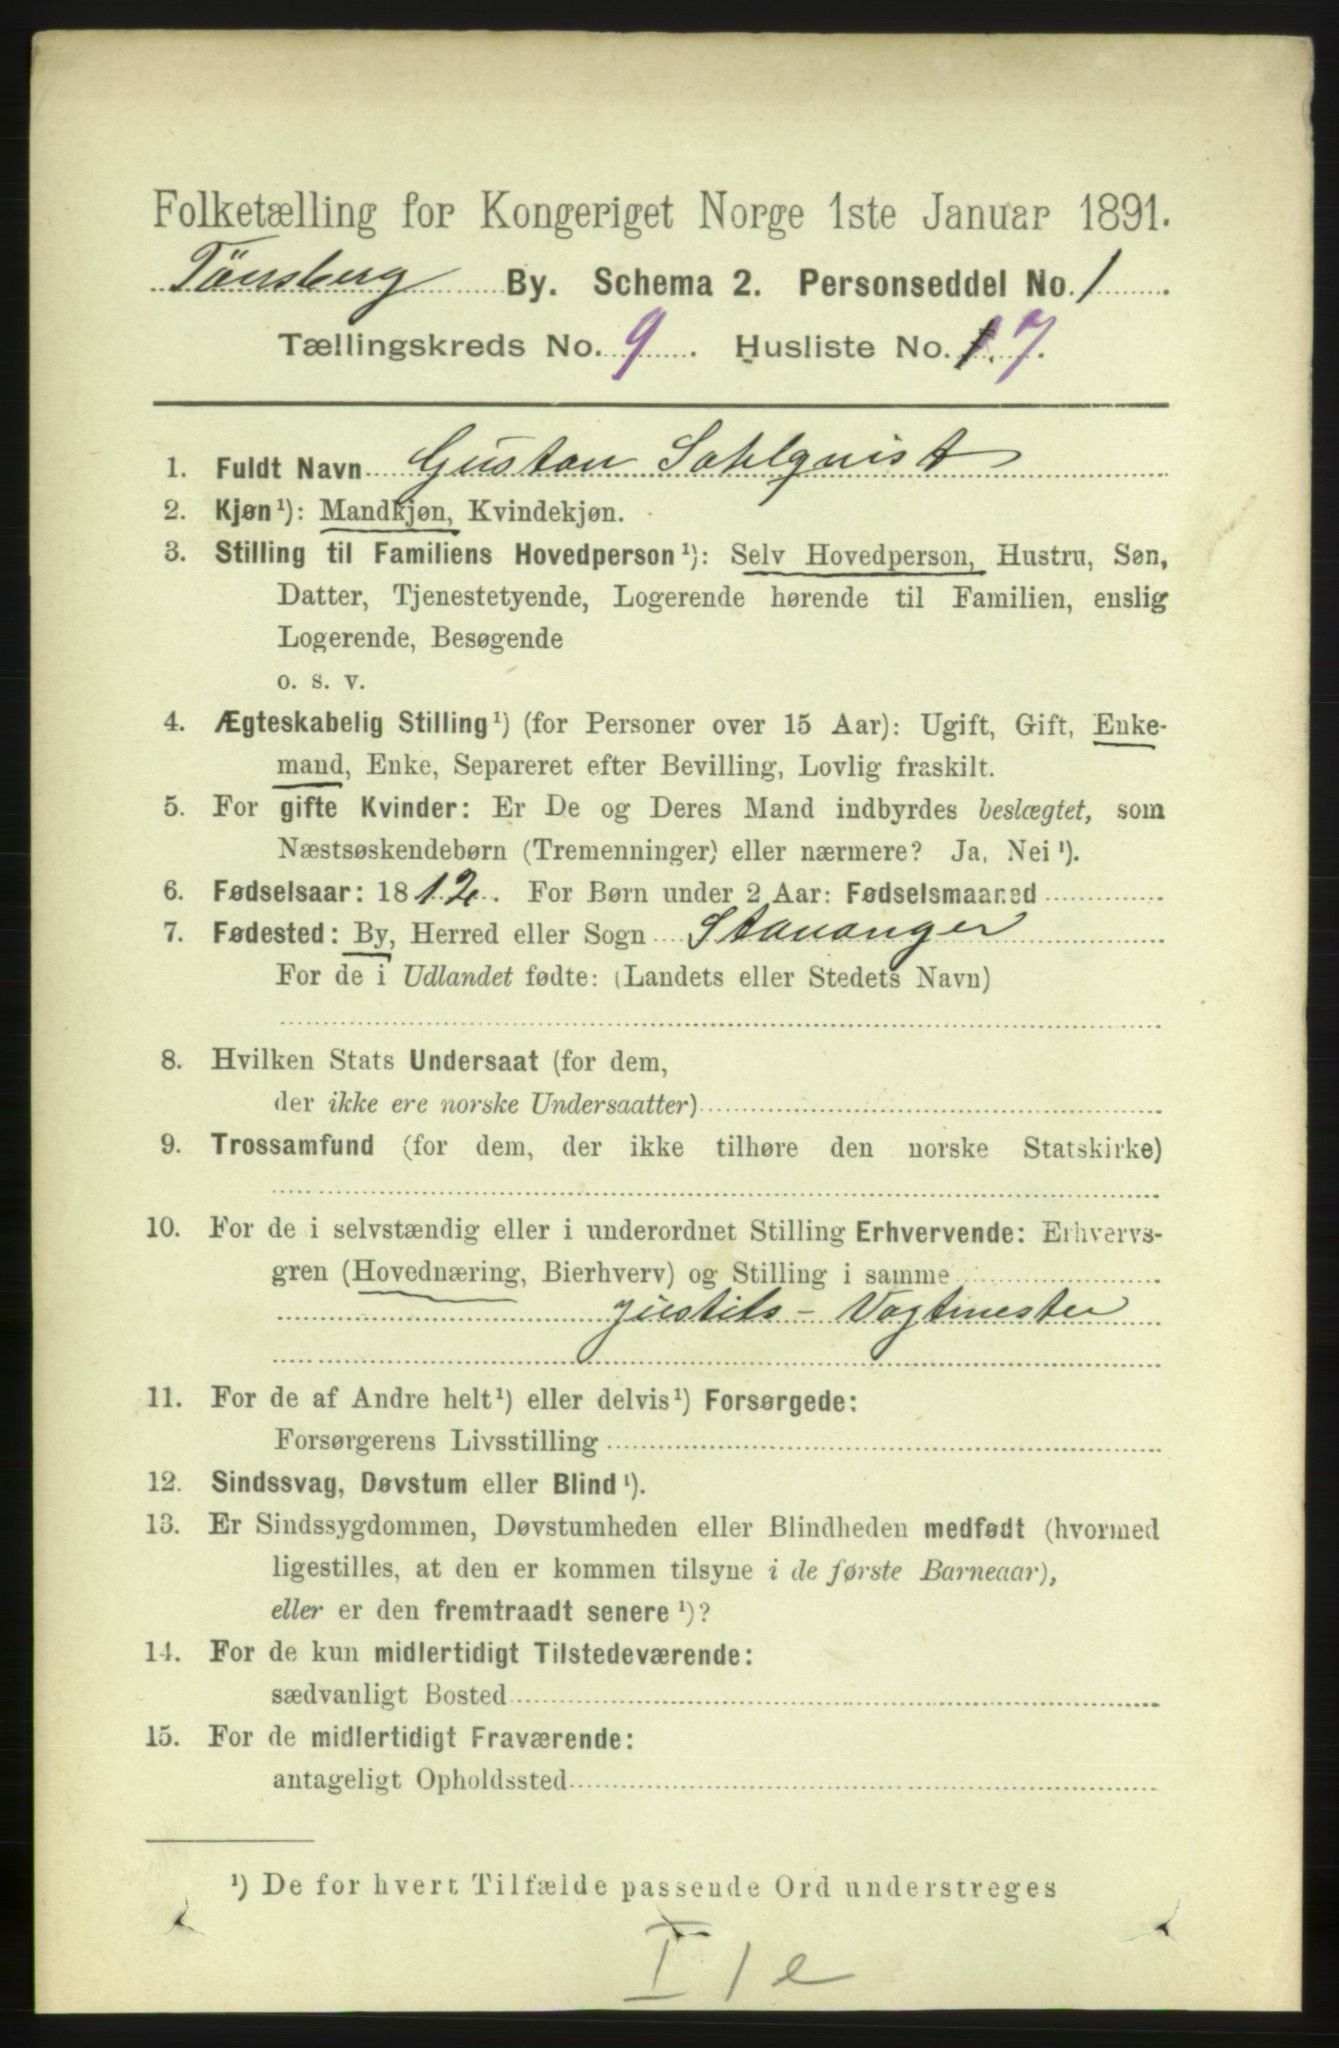 Folketælling for Kongeriget Norge 1ste Januar 1891.
Tönsberg By. Schema 2. Personseddel No. 1
Tællingskreds No. 9. Husliste No. 17.
1. Fuldt Navn Gustav Sahlqvist
2. Kjøn¹): Mandkjøn, Kvindekjøn.
3. Stilling til Familiens Hovedperson¹): Selv Hovedperson, Hustru, Søn,
Datter, Tjenestetyende, Logerende hørende til Familien, enslig
Logerende, Besøgende
o. s. v.
4. Ægteskabelig Stilling¹) (for Personer over 15 Aar): Ugift, Gift, Enke-
mand, Enke, Separeret efter Bevilling, Lovlig fraskilt.
5. For gifte Kvinder: Er De og Deres Mand indbyrdes beslægtet, som
Næstsøskendebørn (Tremenninger) eller nærmere? Ja, Nei¹).
6. Fødselsaar: 1812. For Børn under 2 Aar: Fødselsmaaned
7. Fødested: By, Herred eller Sogn Stavanger
For de i Udlandet fødte: (Landets eller Stedets Navn)
8. Hvilken Stats Undersaat (for dem,
der ikke ere norske Undersaatter)
9. Trossamfund (for dem, der ikke tilhøre den norske Statskirke)
10. For de i selvstændig eller i underordnet Stilling Erhvervende: Erhvervs-
gren (Hovednæring, Bierhverv) og Stilling i samme
Justits-Vagtmester
11. For de af Andre helt¹) eller delvis¹) Forsørgede:
Forsørgerens Livsstilling
12. Sindssvag, Døvstum eller Blind¹).
13. Er Sindssygdommen, Døvstumheden eller Blindheden medfødt (hvormed
ligestilles, at den er kommen tilsyne i de første Barneaar),
eller er den fremtraadt senere¹)?
14. For de kun midlertidigt Tilstedeværende:
sædvanligt Bosted
15. For de midlertidigt Fraværende:
antageligt Opholdssted
¹) De for hvert Tilfælde passende Ord understreges
I 1 e